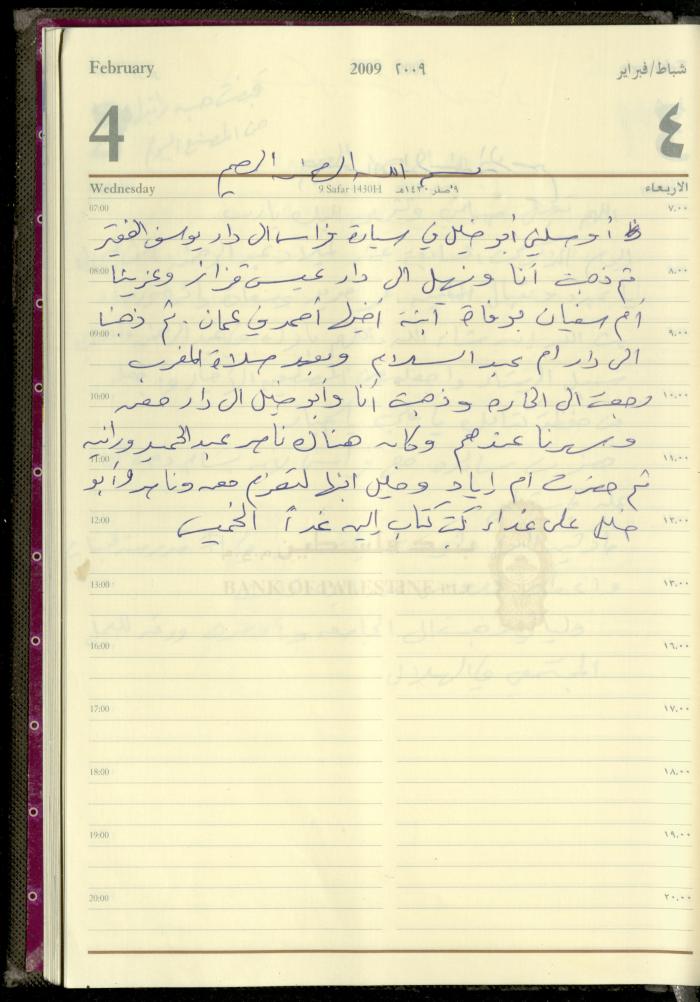 February 2009 ٢٠٠٩ شباط/فبراير
4 ٤
بسم الله الرحمن الرحيم
Wednesday 9 Safar 1430H ٩ صفر ١٤٣٠هـ الاربعاء
07:00 ٧.٠٠
أوصلني أبو خليل في سيارة فراس الى دار يوسف الفقير
08:00 ٨.٠٠
ثم ذهبت أنا ونهيل الى دار عيسى قزاز وعزينا
أم سفيان بوفاة ابنة أخيها أحمد في عمان . ثم ذهبنا
09:00 ٩.٠٠
الى دار ام عبد السلام وبعد صلاة المغرب
10:00 ١٠.٠٠
رجعت الى الحاره وذهبت أنا وأبو خليل الى دار معن
وسهرنا عندهم وكان هناك ناصر عبد الحميد ورانيه
11:00 ١١.٠٠
ثم حضرت ام إياد وخليل ابنها لتعزم معن وناصر وأبو
12:00 ١٢.٠٠
خليل على غداء كتب كتاب إليه غداً الخميس
بنك فلسطين
13:00 ١٣.٠٠
BANK OF PALESTINE
16:00 ١٦.٠٠
17:00 ١٧.٠٠
18:00 ١٨.٠٠
19:00 ١٩.٠٠
20:00 ٢٠.٠٠